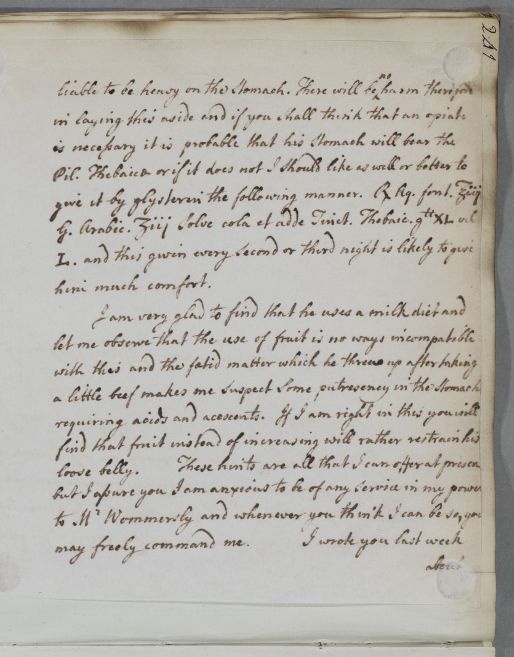 241
liable to be heavy on the Stomach. There will be no harm therefore
in laying this aside and if you shall think that an opiate
is necessary it is probable that his Stomach will bear the
Pil. Thebaica or if it does not I should like as well or better to
give it by glyster in the following manner. ℞ Aq. font. ℥iij
G. Arabic. ʒiij Solve cola et adde Tinct. Thebaic. gtt XL vel
L. and this given every second or third night is likely to give
him much comfort.
I am very glad to find that he uses a milk diet and
let me observe that the use of fruit is no ways incompatible
with this and the fatid matter which he threw up after taking
a little beef makes me suspect some putrescency in the Stomach
requiring acids and acescents. If I am right in this you will
find that fruit instead of increasing will rather restrain his
loose belly. These hints are all that I can offer at present
but I assure you I am anxious to be of any service in my power
to Mr Wommersly and whenever you think I can be so, you
may freely command me. I wrote you last week
about